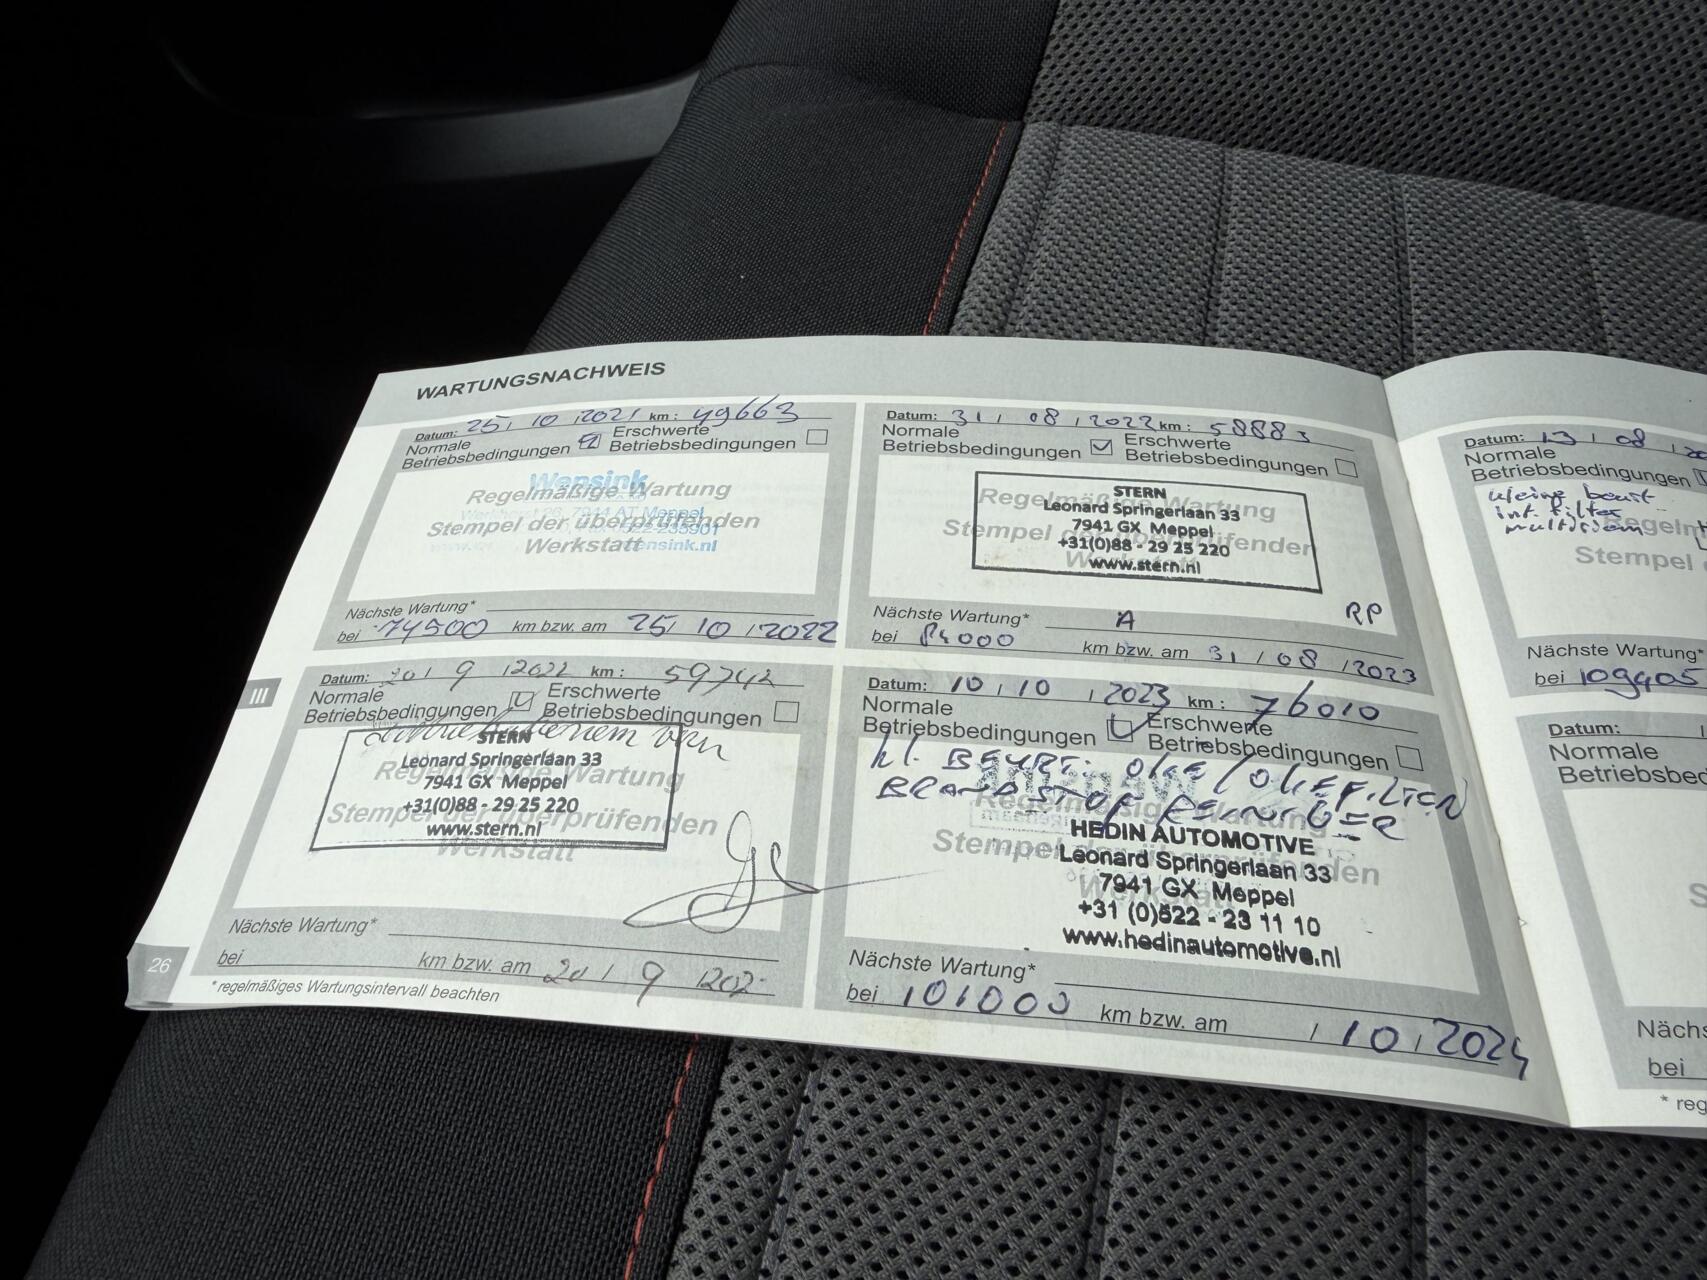 WARTUNGSNACHWEIS
Datum: 25 / 10 / 2021 km: 49663
Normale Betriebsbedingungen Erschwerte Betriebsbedingungen
Wensink
Regelmäßige Wartung
7944 AT Meppel
Stempel der überprüfenden
Werkstatt
Nächste Wartung*
bei 74500 km bzw. am 25 / 10 / 2022
Datum: 31 / 08 / 2022 km: 58883
Normale Betriebsbedingungen Erschwerte Betriebsbedingungen
STERN
Regelmäßige Wartung
Leonard Springerlaan 33
7941 GX Meppel
Stempel der überprüfenden
+31(0)88 - 29 25 220
www.stern.nl
Nächste Wartung* A RP
bei 84000 km bzw. am 31 / 08 / 2023
III
Datum: 20 / 9 / 2022 km: 59742
Normale Betriebsbedingungen Erschwerte Betriebsbedingungen
STERN
Leonard Springerlaan 33
Regelmäßige Wartung
7941 GX Meppel
+31(0)88 - 29 25 220
Stempel der überprüfenden
www.stern.nl
Werkstatt
Nächste Wartung*
bei km bzw. am 20 / 9 / 202
26
* regelmäßiges Wartungsintervall beachten
Datum: 10 / 10 / 2023 km: 76010
Normale Betriebsbedingungen Erschwerte Betriebsbedingungen
kl. BEURT. OLIE / OLIEFILTER
Regelmäßige Wartung
HEDIN AUTOMOTIVE
Stempel der überprüfenden
Leonard Springerlaan 33
7941 GX Meppel
+31 (0)522 - 23 11 10
www.hedinautomotive.nl
Nächste Wartung*
bei 101000 km bzw. am / 10 / 2024
Datum: 13 / 08 / 20
Normale
Betriebsbedingungen
kleine beurt
int. filter
Regelm
Stempel
Nächste Wartung*
bei 109405
Datum:
Normale
Betriebsbed
S
Nächs
bei
* reg